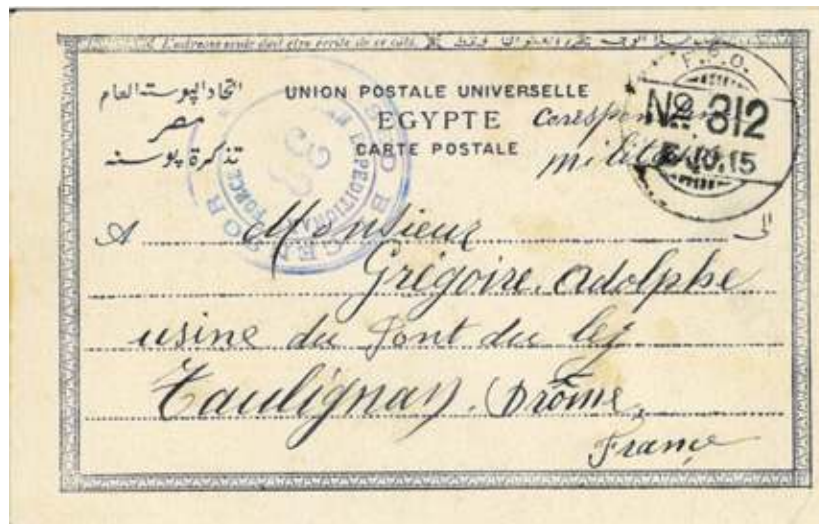 L'adresse seule doit être écrite de ce côté.
اتحاد البوستة العام
مصر
تذكرة بوسته
UNION POSTALE UNIVERSELLE
EGYPTE
CARTE POSTALE
F.P.O.
Nº 312
10.15
EXPEDITIONARY FORCE
A Monsieur الى
Grégoire Adolphe
usine du Pont du lez
Taulignan, Drôme,
France